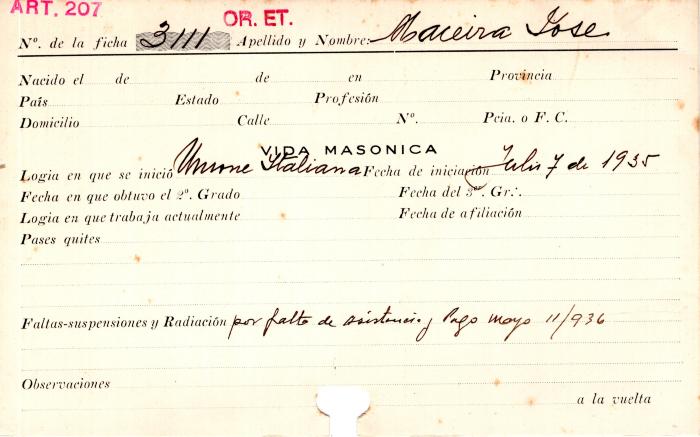 ART. 207
OR. ET.
Nº. de la ficha 3111 Apellido y Nombre: Maceira Jose
Nacido el de de en Provincia
País Estado Profesión
Domicilio Calle Nº. Pcia. o F. C.
VIDA MASONICA
Logia en que se inició Unione Italiana Fecha de iniciación Julio 7 de 1935
Fecha en que obtuvo el 2º. Grado Fecha del 3er. Gr∴
Logia en que trabaja actualmente Fecha de afiliación
Pases quites
Faltas-suspensiones y Radiación por falta de asistencia y Pago mayo 11/936
Observaciones
a la vuelta